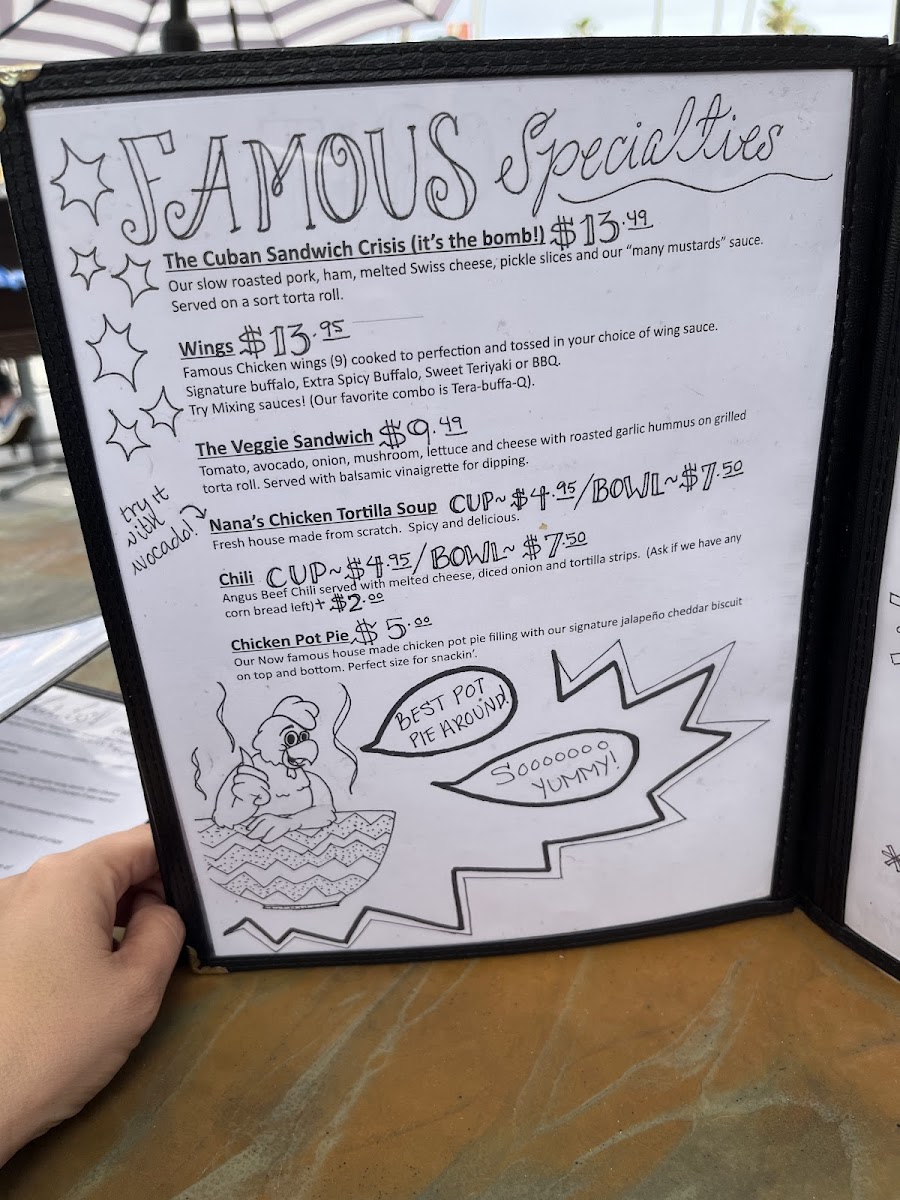 FAMOUS Specialties
The Cuban Sandwich Crisis (it's the bomb!) $13.49
Our slow roasted pork, ham, melted Swiss cheese, pickle slices and our "many mustards" sauce.
Served on a sort torta roll.
Wings $13.95
Famous Chicken wings (9) cooked to perfection and tossed in your choice of wing sauce.
Signature buffalo, Extra Spicy Buffalo, Sweet Teriyaki or BBQ.
Try Mixing sauces! (Our favorite combo is Tera-buffa-Q).
The Veggie Sandwich $9.49
Tomato, avocado, onion, mushroom, lettuce and cheese with roasted garlic hummus on grilled
torta roll. Served with balsamic vinaigrette for dipping.
try it
with
avocado!
Nana's Chicken Tortilla Soup CUP~$4.95/BOWL~$7.50
Fresh house made from scratch. Spicy and delicious.
Chili CUP~$4.95/BOWL~$7.50
Angus Beef Chili served with melted cheese, diced onion and tortilla strips. (Ask if we have any
corn bread left)+$2.00
Chicken Pot Pie $5.00
Our Now famous house made chicken pot pie filling with our signature jalapeño cheddar biscuit
on top and bottom. Perfect size for snackin'.
BEST POT
PIE AROUND!
Sooooooo
YUMMY!